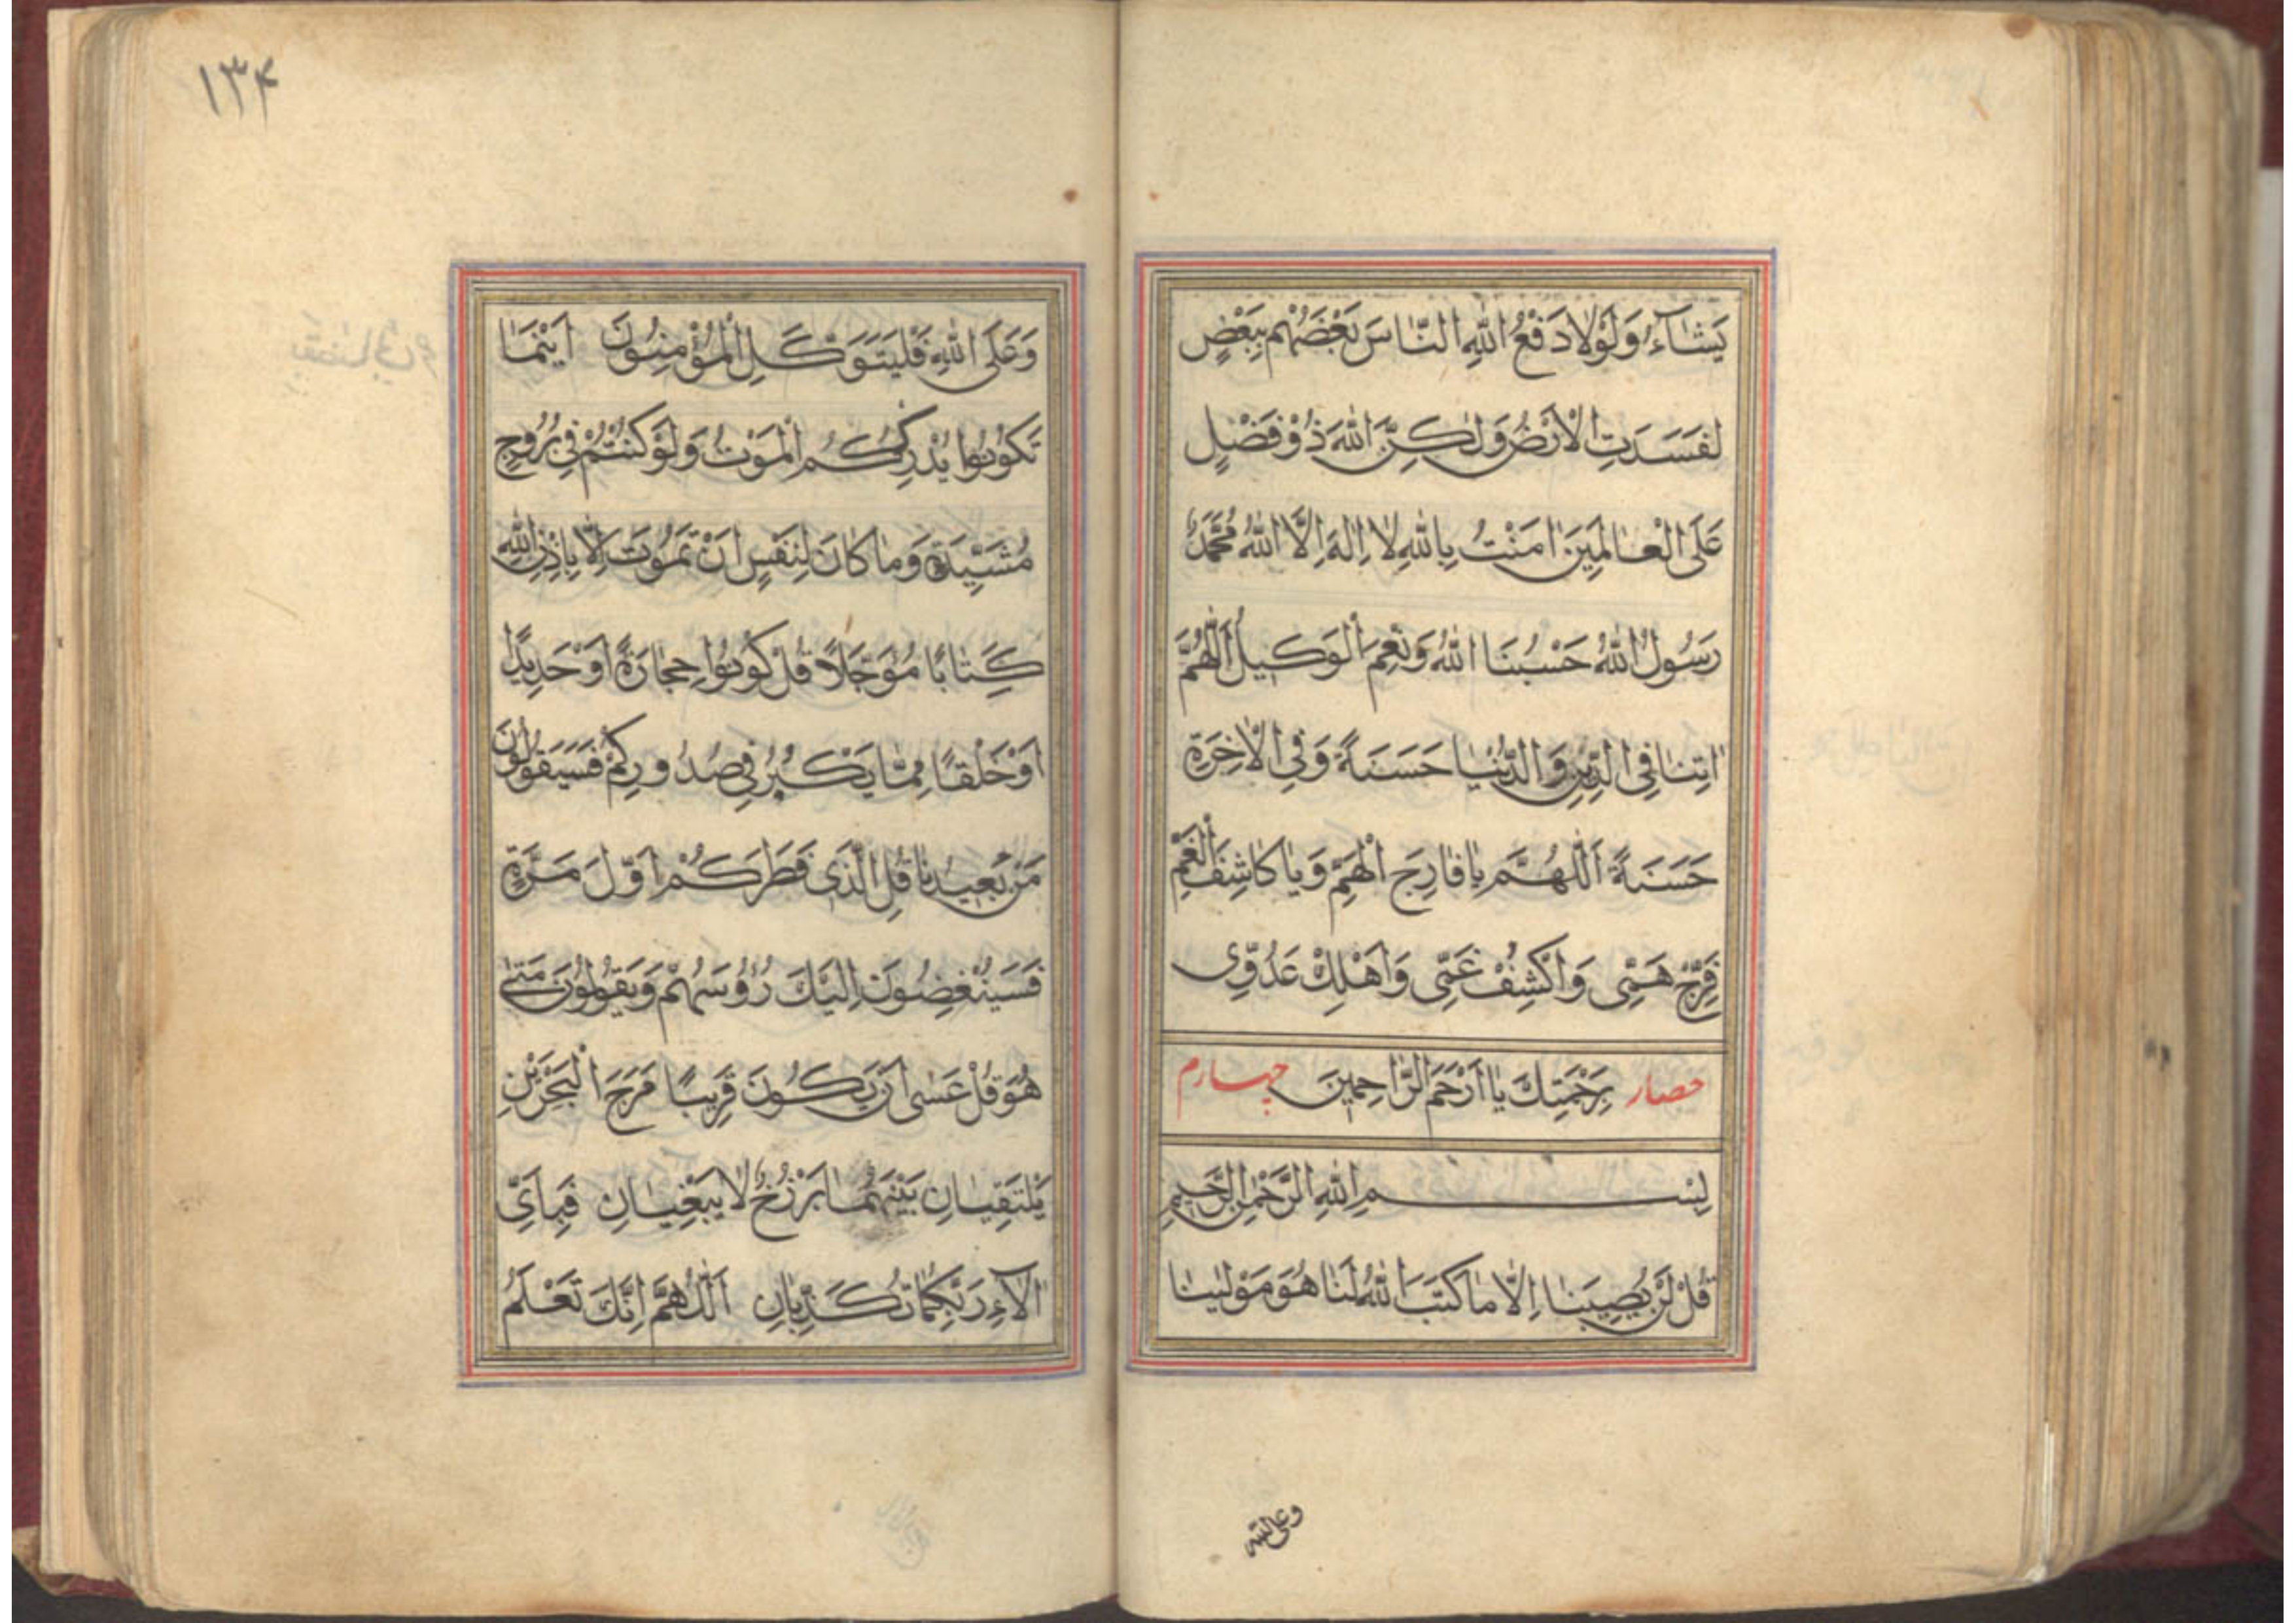 يَشَآءُ وَلَوْلَا دَفْعُ اللّٰهِ النَّاسَ بَعْضَهُمْ بِبَعْضٍ
لَفَسَدَتِ الْاَرْضُ وَلٰكِنَّ اللّٰهَ ذُوْ فَضْلٍ
عَلَى الْعَالَمِيَنَ اٰمَنْتُ بِاللّٰهِ لَا اِلٰهَ اِلَّا اللّٰهُ مُحَمَّدٌ
رَسُولُ اللّٰهُ حَسْبُنَا اللّٰهُ وَنِعْمَ الْوَكِيلُ اَللّٰهُمَّ
اٰتِنَا فِى الدِّيْنِ وَالدُّنْيَا حَسَنَةً وَفِى الْاٰخِرَةِ
حَسَنَةً اَللّٰهُمَّ يَا فَارِجَ الْهَمِّ وَيَا كَاشِفَ الْغَمِّ
فَرِّجْ هَمِّى وَاكْشِفْ غَمِّى وَاَهْلِكْ عَدُوِّى
حصار بِرَحْمَتِكَ يَا اَرْحَمَ الرَّاحِمِينَ چهارم
بِسْمِ اللّٰهِ الرَّحْمٰنِ الرَّحِيمِ
قُلْ لَنْ يُصِيبَنَا اِلَّا مَا كَتَبَ اللّٰهُ لَنَا هُوَ مَوْلٰينَا
وعلى الله
١٣۴
وَعَلَى اللّٰهِ فَلْيَتَوَكَّلِ الْمُؤْمِنُونَ اَيْنَمَا
تَكُونُوا يُدْرِكْكُمُ الْمَوْتُ وَلَوْ كُنْتُمْ فِى بُرُوجٍ
مُشَيَّدَةٍ وَمَا كَانَ لِنَفْسٍ اَنْ تَمُوتَ اِلَّا بِاِذْنِ اللّٰهِ
كِتَابًا مُؤَجَّلًا قُلْ كُونُوا حِجَارَةً اَوْ حَدِيدًا
اَوْ خَلْقًا مِمَّا يَكْبُرُ فِى صُدُورِكُمْ فَسَيَقُولُونَ
مَنْ يُعِيدُنَا قُلِ الَّذِى فَطَرَكُمْ اَوَّلَ مَرَّةٍ
فَسَيُنْغِضُونَ اِلَيْكَ رُؤُسَهُمْ وَيَقُولُونَ مَتٰى
هُوَ قُلْ عَسٰى اَنْ يَكُونَ قَرِيبًا مَرَجَ الْبَحْرَيْنِ
يَلْتَقِيَانِ بَيْنَهُمَا بَرْزَخٌ لَا يَبْغِيَانِ فَبِاَىِّ
اٰلَآءِ رَبِّكُمَا تُكَذِّبَانِ اَللّٰهُمَّ اِنَّكَ تَعْلَمُ